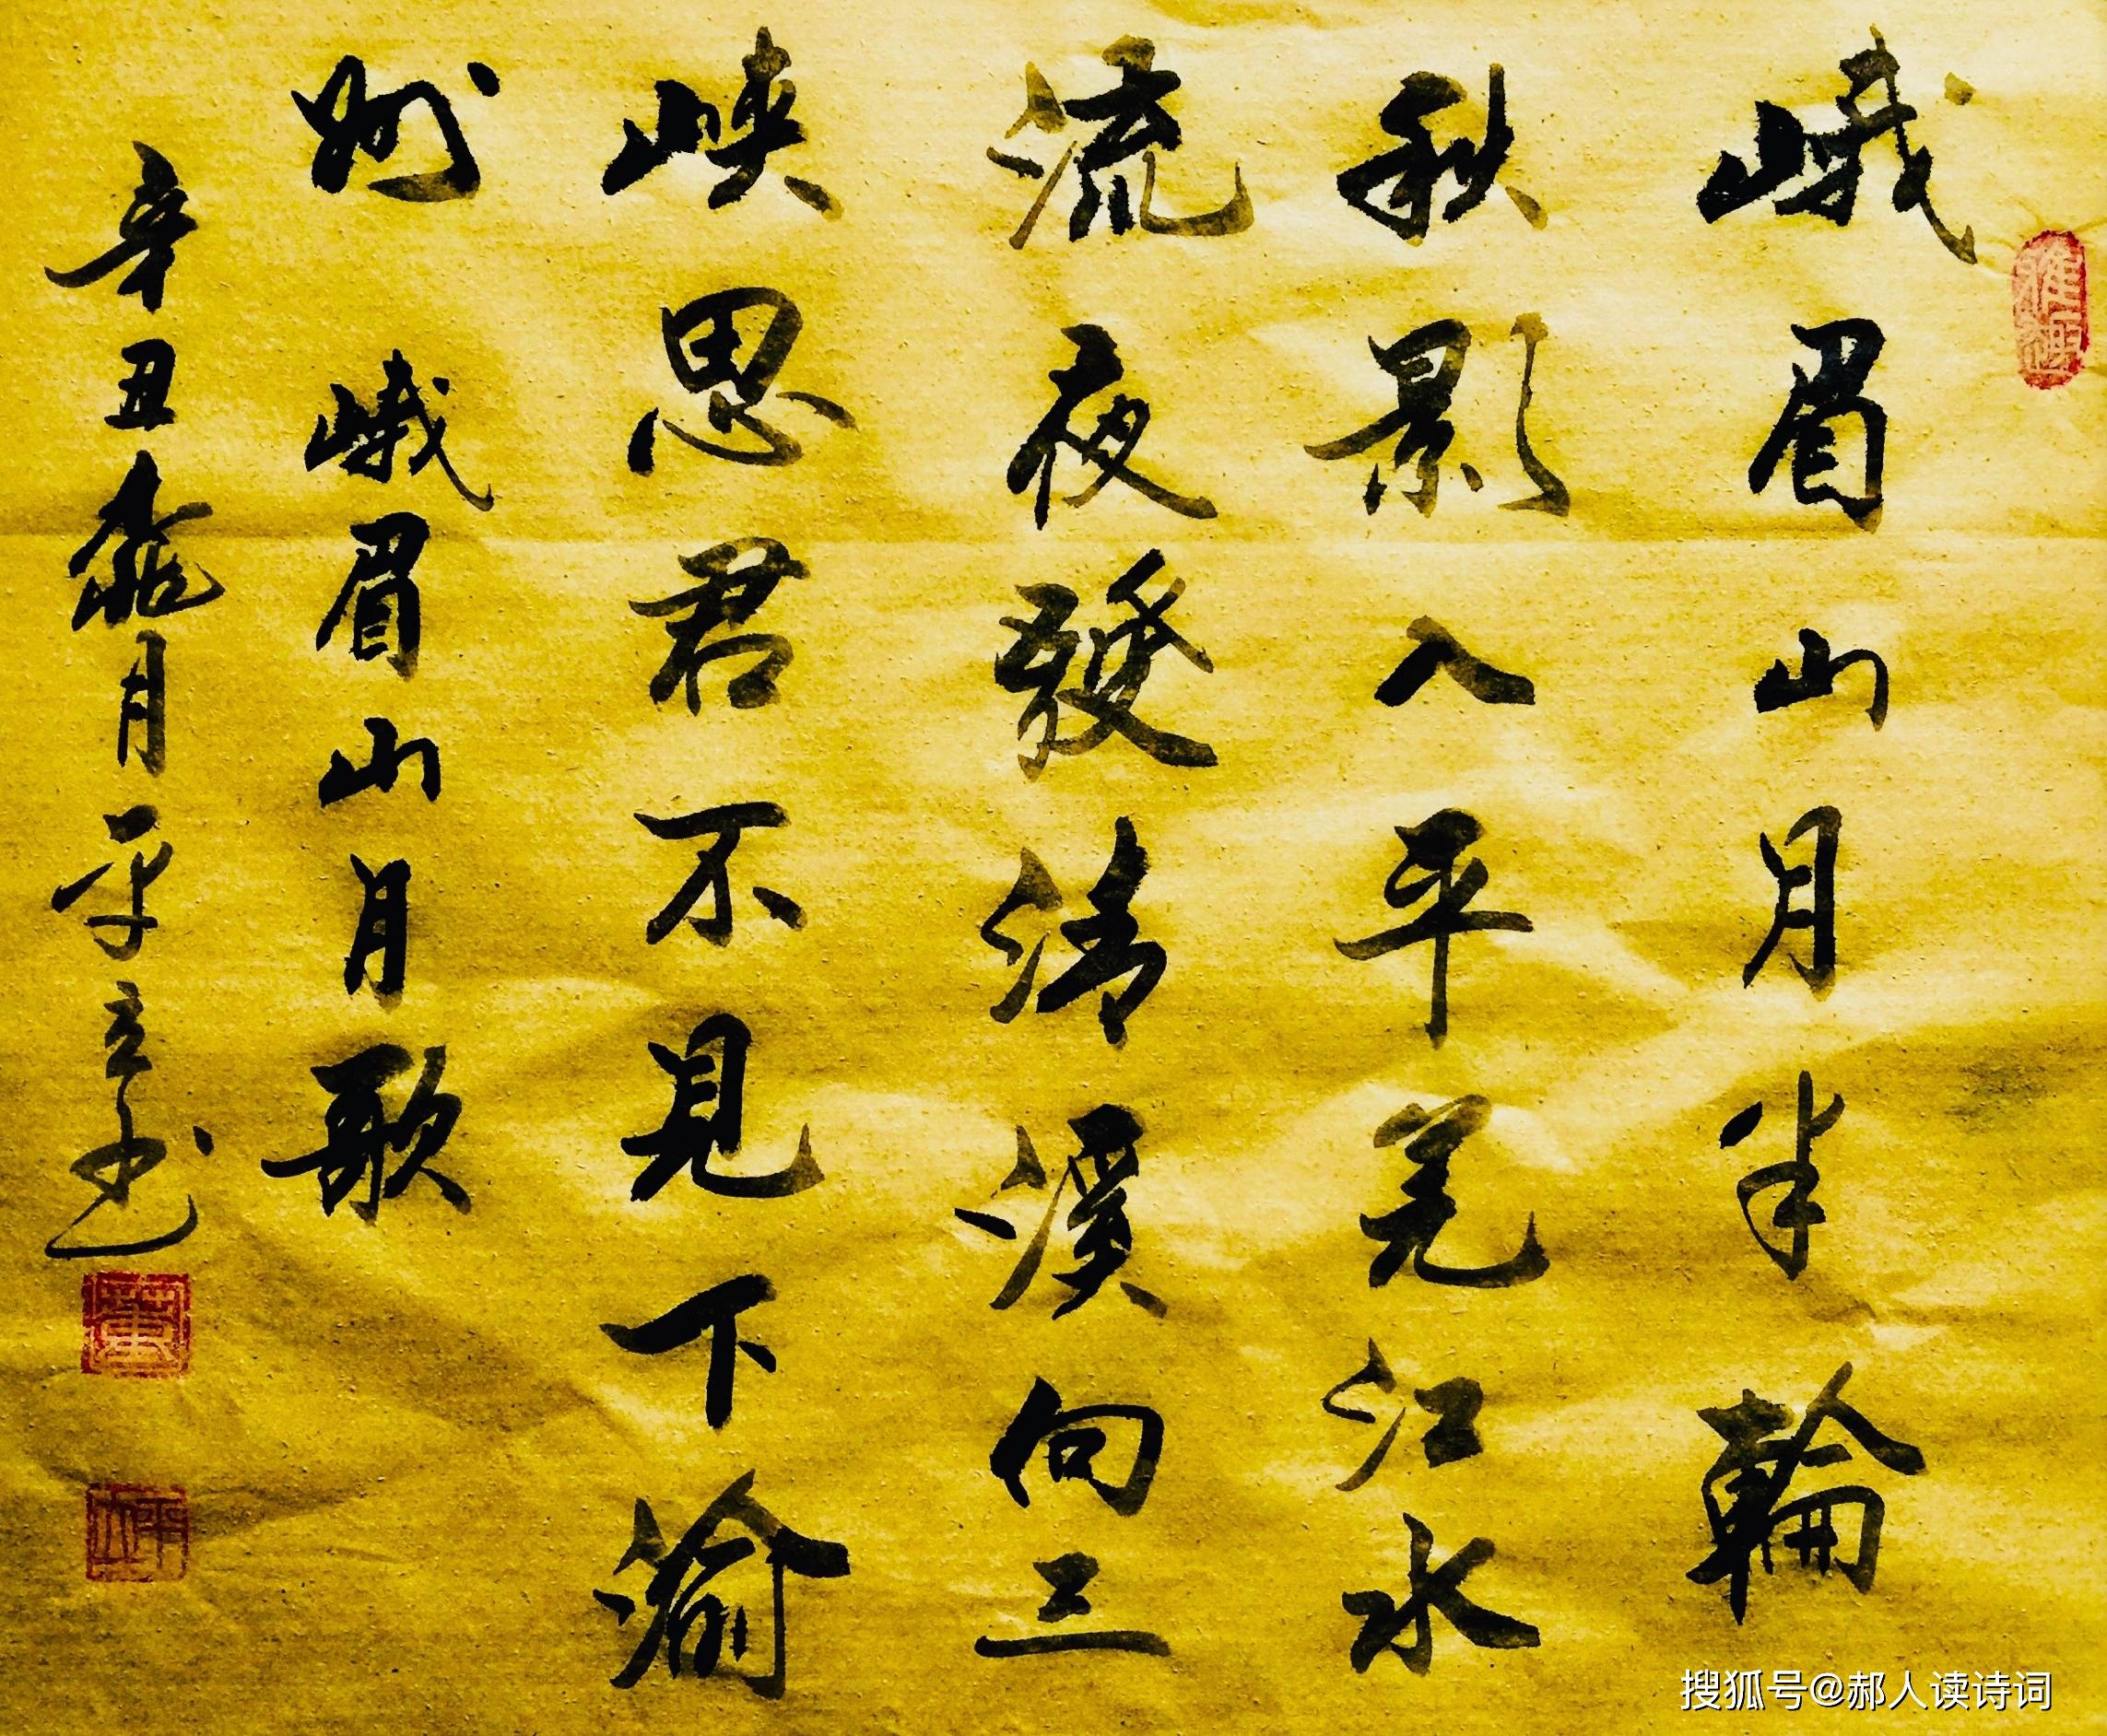 峨眉山月半輪
秋影入平羌江水
流夜發清溪向三
峽思君不見下渝
州 峨眉山月歌
辛丑 月平立书
搜狐号@郝人读诗词